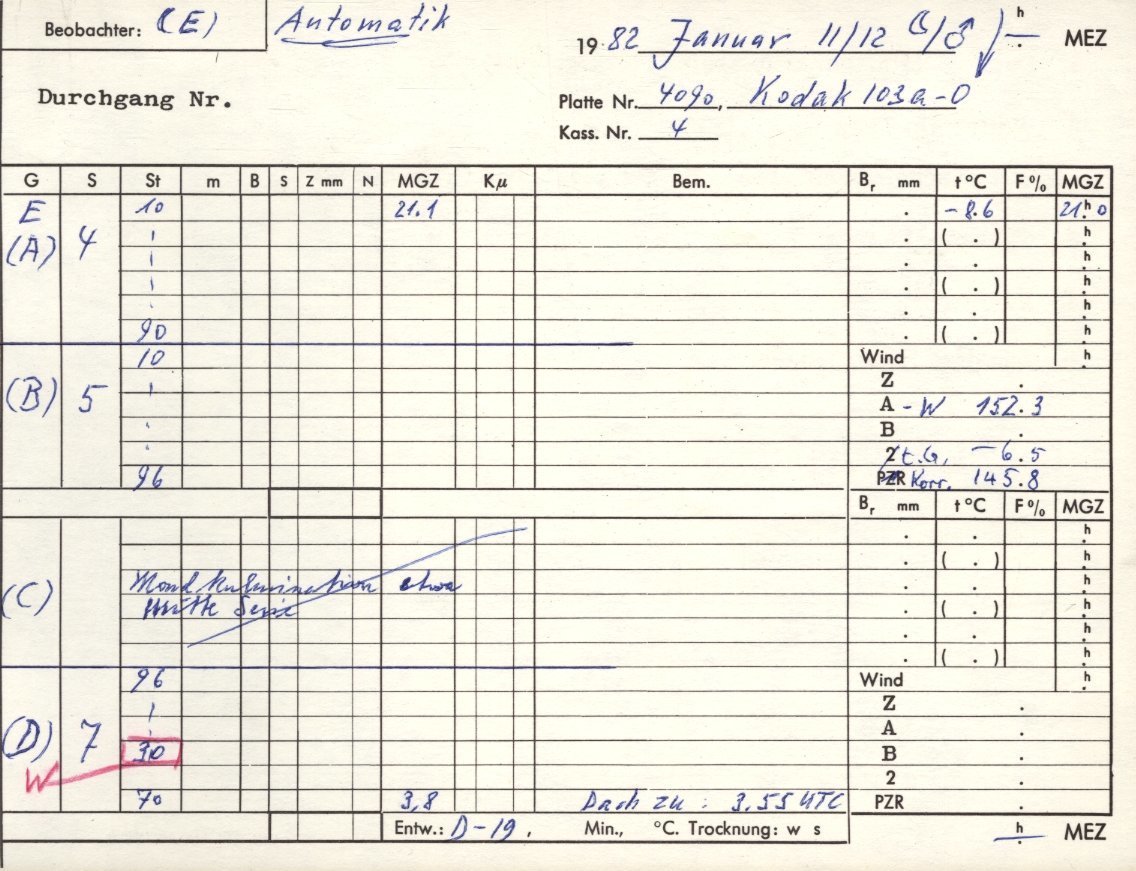 Beobachter: (E) Automatik
19 82 Januar 11/12 ☾/♂ h . MEZ
Durchgang Nr.
Platte Nr. 4090, Kodak 103a-O
Kass. Nr. 4
G S St m B S Z mm N MGZ Kμ Bem. Br mm t°C F% MGZ
E 10 21.1 . -8.6 21.h0
(A) 4 . ( . ) h
. . h
. ( . ) h
. . h
90 . ( . ) h
10 Wind h
Z .
(B) 5 A - W 152.3
B .
2 t.G. -6.5
96 PZR Korr. 145.8
Br mm t°C F% MGZ
. . h
. ( . ) h
(C) Mondkulmination etwa . . h
Mitte Serie . ( . ) h
. . h
. ( . ) h
96 Wind h
Z .
(D) 7 A .
30 B .
W 2 .
70 3,8 Dach zu : 3.55 UTC PZR .
Entw.: D-19, Min., °C. Trocknung: w s h . MEZ